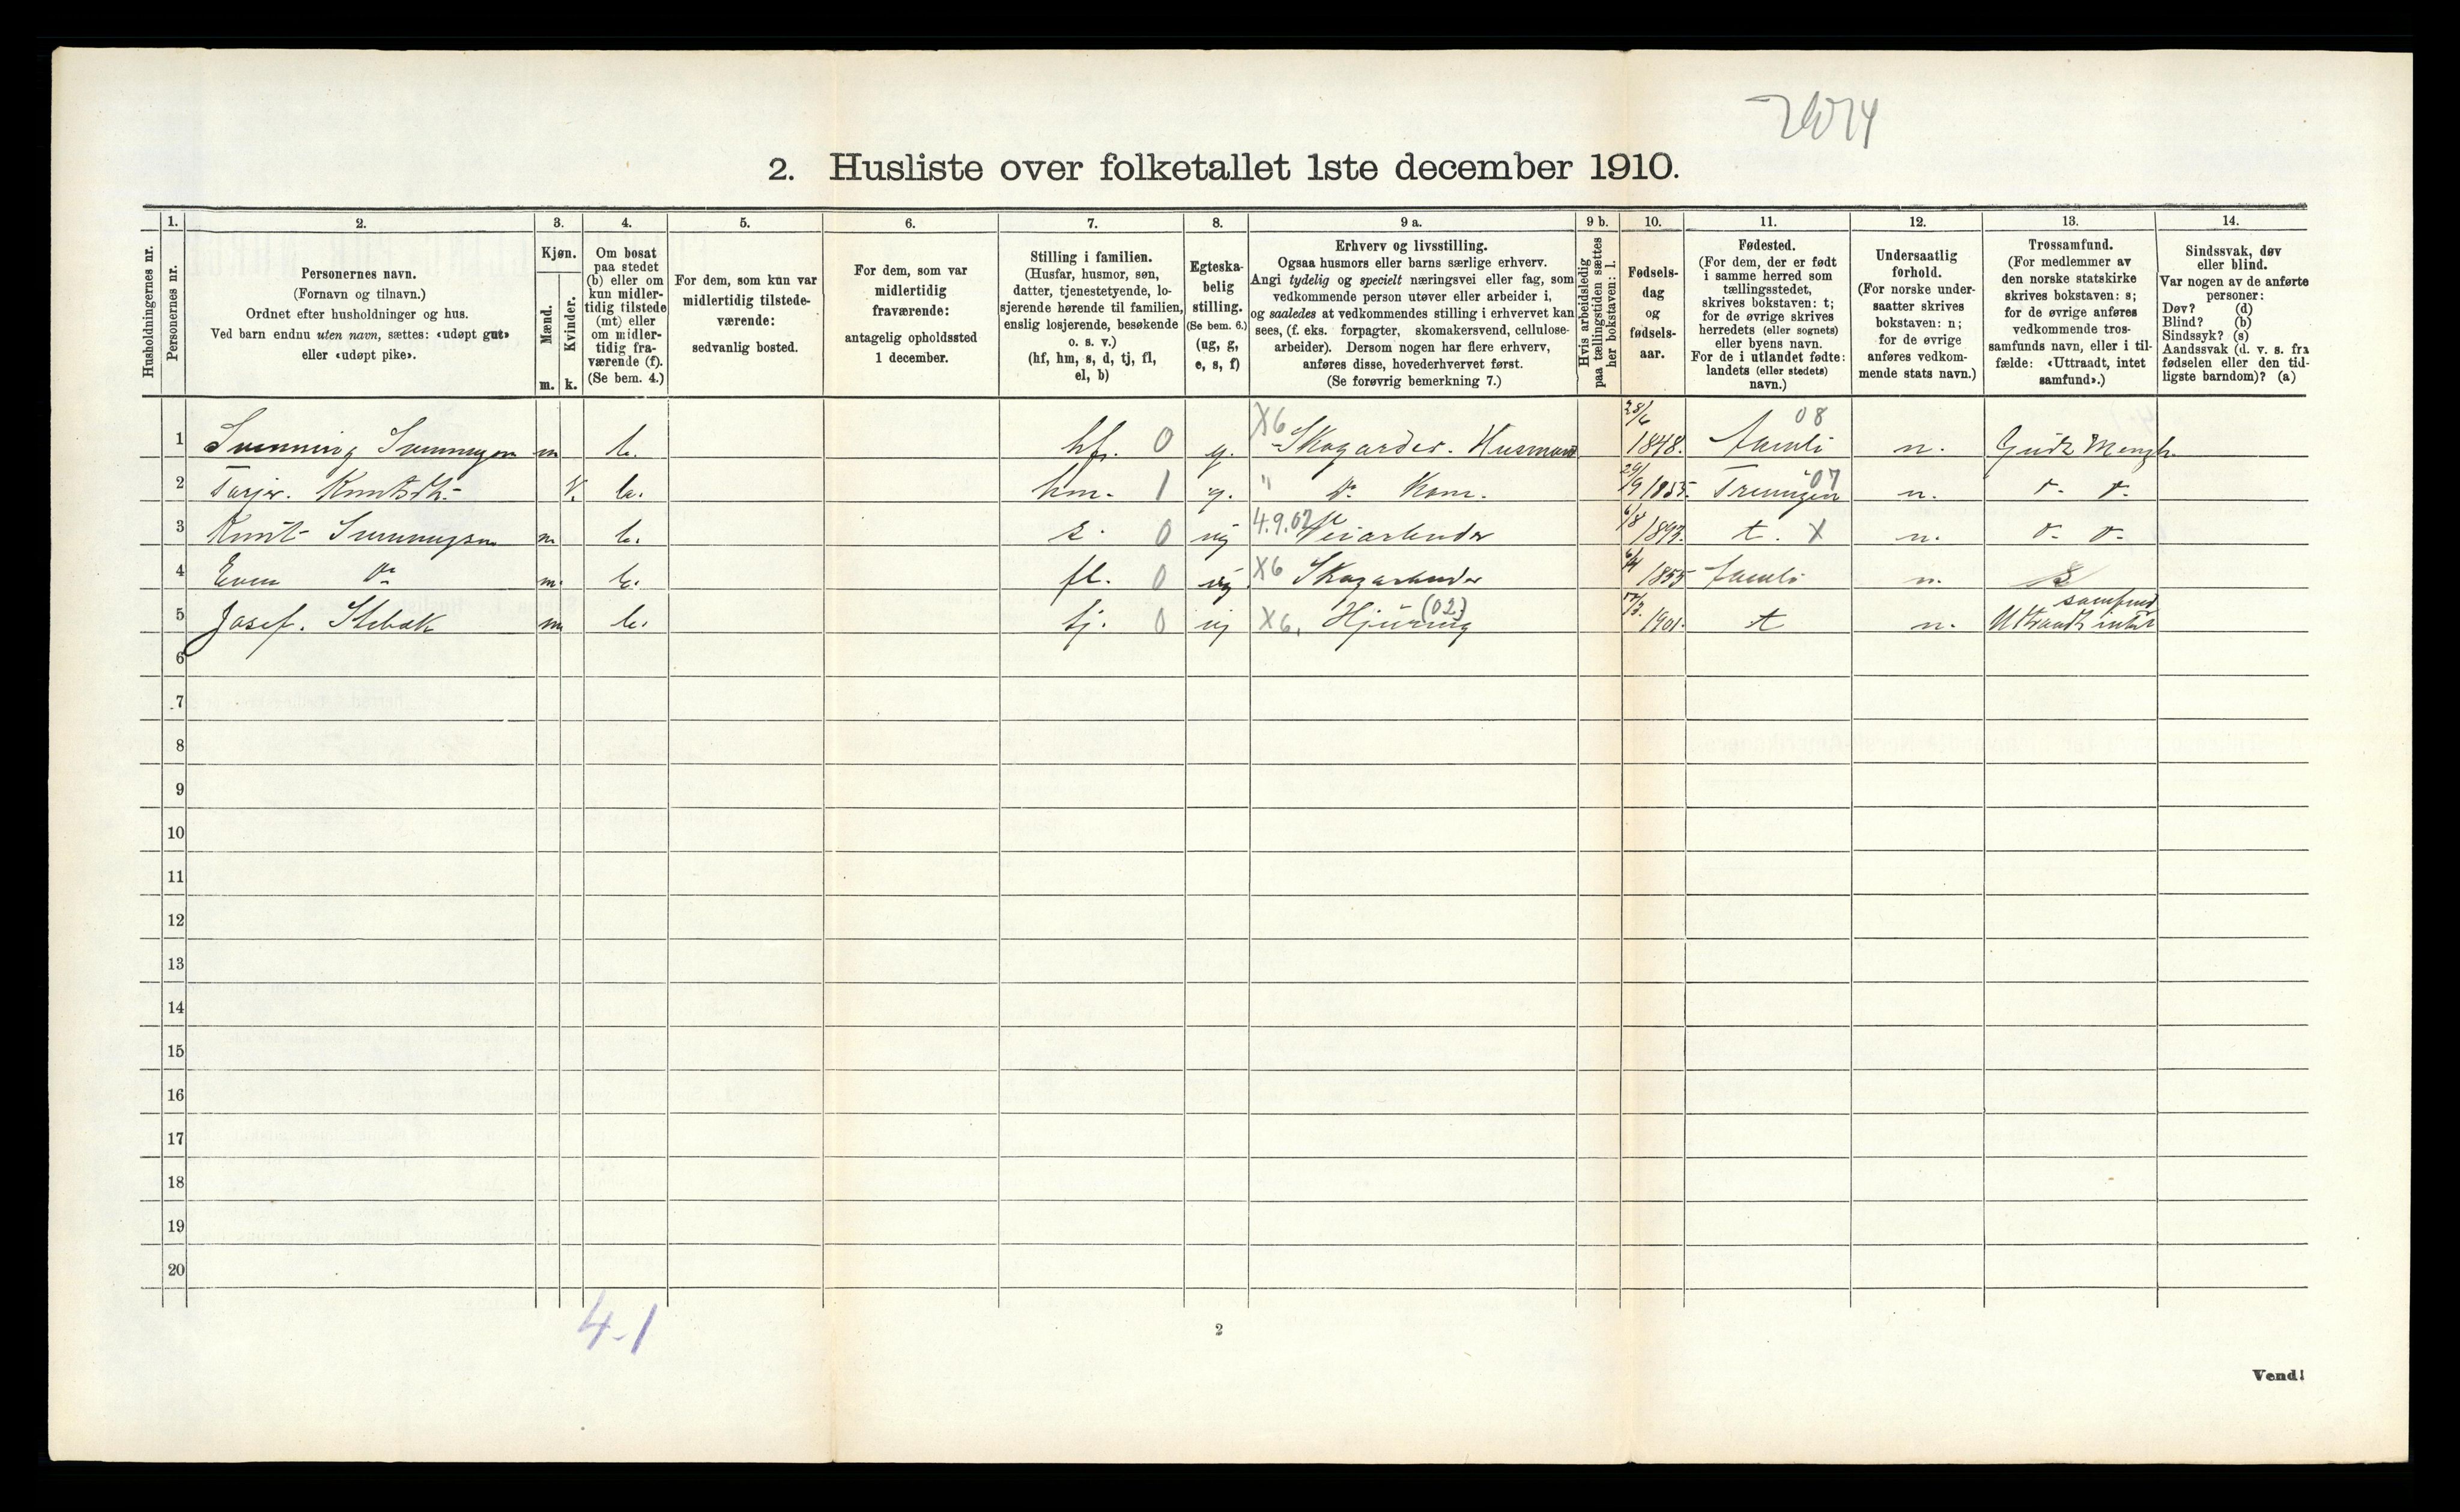 2. Husliste over folketallet 1ste december 1910.
Husholdningernes nr.
1.
Personernes nr.
2.
Personernes navn.
(Fornavn og tilnavn.)
Ordnet efter husholdninger og hus.
Ved barn endnu uten navn, sættes: «udøpt gut»
eller «udøpt pike».
3.
Kjøn.
Mænd.
Kvinder.
m. k.
4.
Om bosat
paa stedet
(b) eller om
kun midler-
tidig tilstede
(mt) eller
om midler-
tidig fra-
værende (f).
(Se bem. 4.)
5.
For dem, som kun var
midlertidig tilstede-
værende:
sedvanlig bosted.
6.
For dem, som var
midlertidig
fraværende:
antagelig opholdssted
1 december.
7.
Stilling i familien.
(Husfar, husmor, søn,
datter, tjenestetyende, lo-
sjerende hørende til familien,
enslig losjerende, besøkende
o. s. v.)
(hf, hm, s, d, tj, fl,
el, b)
8.
Egteska-
belig
stilling.
(Se bem. 6.)
(ug, g,
e, s, f)
9 a.
Erhverv og livsstilling.
Ogsaa husmors eller barns særlige erhverv.
Angi tydelig og specielt næringsvei eller fag, som
vedkommende person utøver eller arbeider i,
og saaledes at vedkommendes stilling i erhvervet kan
sees, (f. eks. forpagter, skomakersvend, cellulose-
arbeider). Dersom nogen har flere erhverv,
anføres disse, hovederhvervet først.
(Se forøvrig bemerkning 7.)
9 b.
Hvis arbeidsledig
paa tællingstiden sættes
her bokstaven: l.
10.
Fødsels-
dag
og
fødsels-
aar.
11.
Fødested.
(For dem, der er født
i samme herred som
tællingsstedet,
skrives bokstaven: t;
for de øvrige skrives
herredets (eller sognets)
eller byens navn.
For de i utlandet fødte:
landets (eller stedets)
navn.)
12.
Undersaatlig
forhold.
(For norske under-
saatter skrives
bokstaven: n;
for de øvrige
anføres vedkom-
mende stats navn.)
13.
Trossamfund.
(For medlemmer av
den norske statskirke
skrives bokstaven: s;
for de øvrige anføres
vedkommende tros-
samfunds navn, eller i til-
fælde: «Uttraadt, intet
samfund».)
14.
Sindssvak, døv
eller blind.
Var nogen av de anførte
personer:
Døv? (d)
Blind? (b)
Sindssyk? (s)
Aandssvak (d. v. s. fra
fødselen eller den tid-
ligste barndom)? (a)
1 m b. hf. 0 g. X6 Husmand 28/6 1848. 08 n.
2 k. b. hm. 1 g. " Do Kone. 29/9 1855. 07 n.
3 Knut m b. s. 0 ug 4.9.02 Veiarbeider 6/8 1893. t. X n.
4 Even Do m. b. fl. 0 ug. X6 6/4 1855 n. s
5 Josef. m b. tj. 0 ug X6. (02) 1901. t n. Uttraadt intet samfund
6
7
8
9
10
11
12
13
14
15
16
17
18
19
20
4-1
2
Vend!